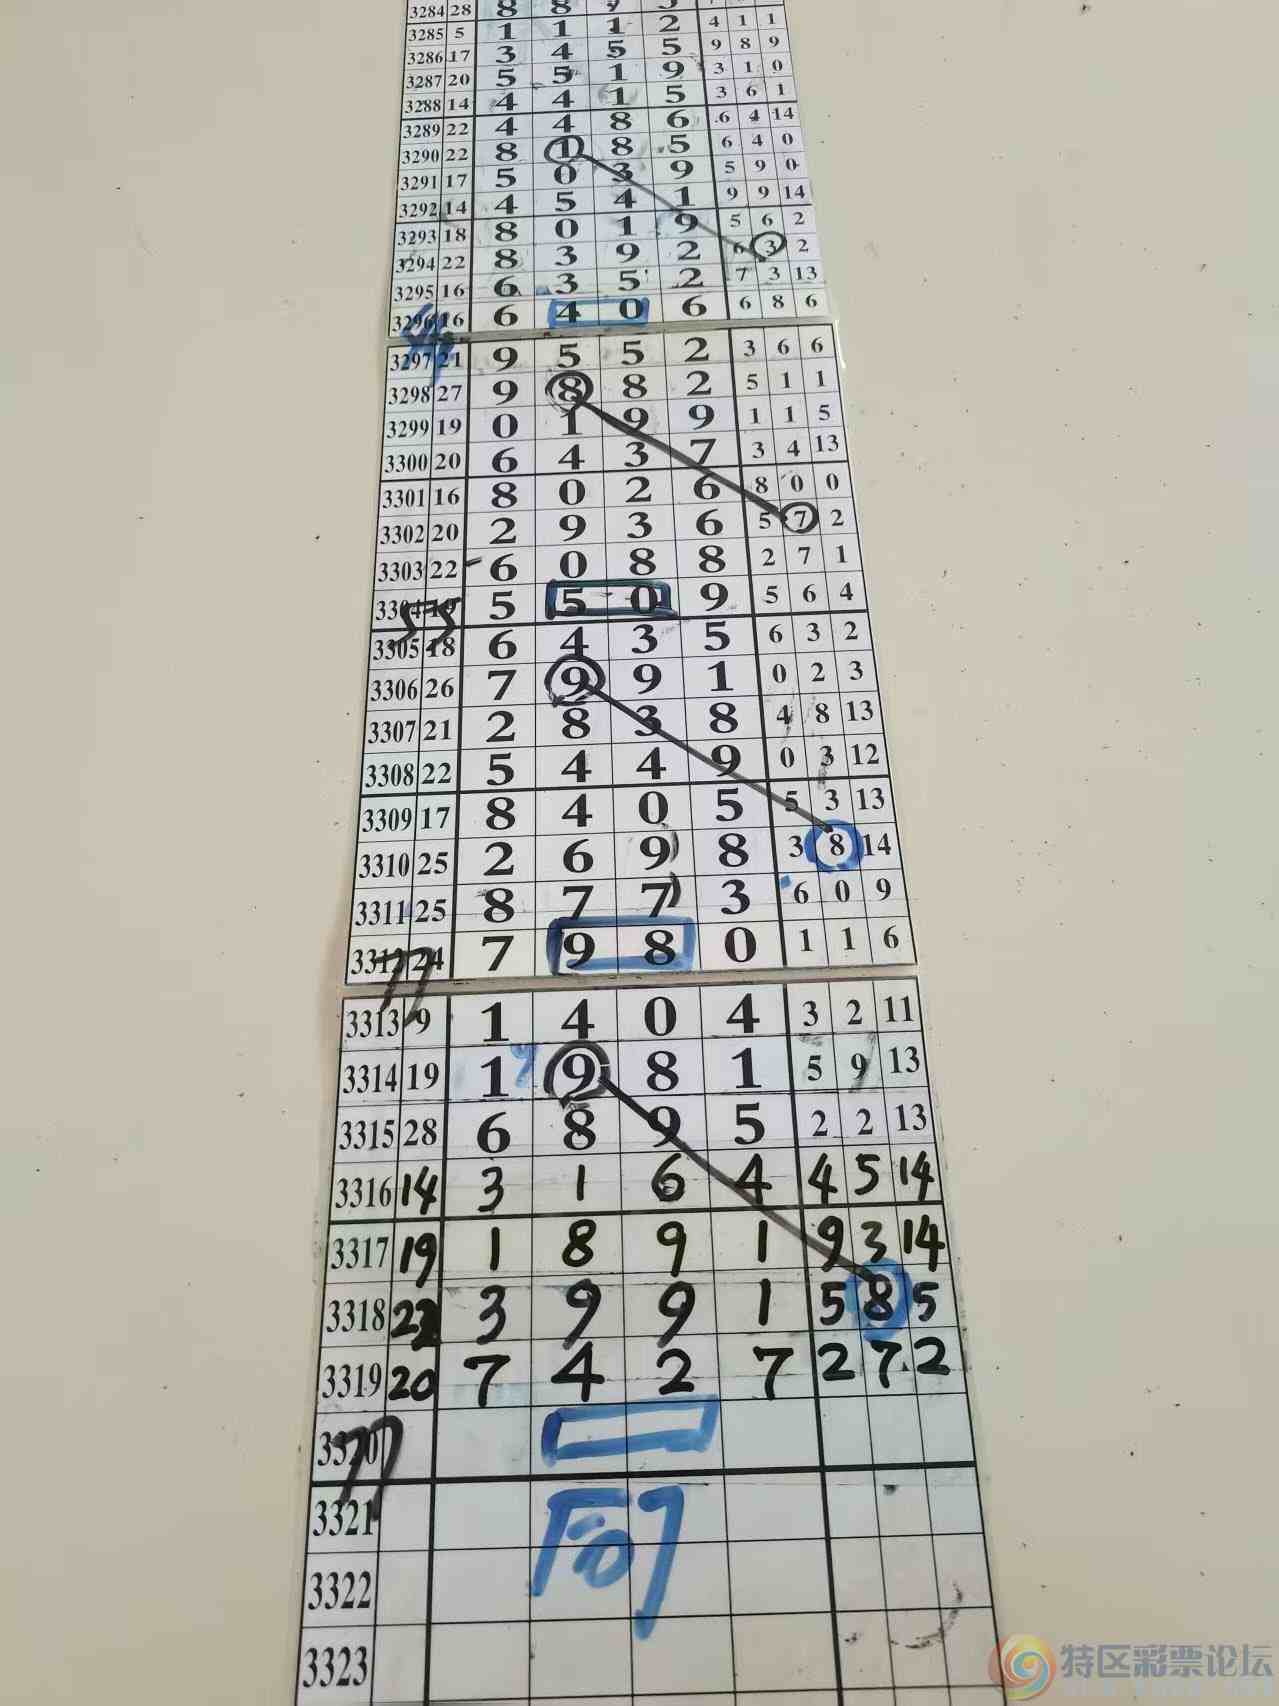 3284 28 8 8
3285 5 1 1 1 2 4 1 1
3286 17 3 4 5 5 9 8 9
3287 20 5 5 1 9 3 1 0
3288 14 4 4 1 5 3 6 1
3289 22 4 4 8 6 6 4 14
3290 22 8 1 8 5 6 4 0
3291 17 5 0 3 9 5 9 0
3292 14 4 5 4 1 9 9 14
3293 18 8 0 1 9 5 6 2
3294 22 8 3 9 2 6 3 2
3295 16 6 3 5 2 7 3 13
3296 16 6 4 0 6 6 8 6
3297 21 9 5 5 2 3 6 6
3298 27 9 8 8 2 5 1 1
3299 19 0 1 9 9 1 1 5
3300 20 6 4 3 7 3 4 13
3301 16 8 0 2 6 8 0 0
3302 20 2 9 3 6 5 7 2
3303 22 6 0 8 8 2 7 1
3304 19 5 5 0 9 5 6 4
55
3305 18 6 4 3 5 6 3 2
3306 26 7 9 9 1 0 2 3
3307 21 2 8 3 8 4 8 13
3308 22 5 4 4 9 0 3 12
3309 17 8 4 0 5 5 3 13
3310 25 2 6 9 8 3 8 14
3311 25 8 7 7 3 6 0 9
3312 24 7 9 8 0 1 1 6
77
3313 9 1 4 0 4 3 2 11
3314 19 1 9 8 1 5 9 13
3315 28 6 8 9 5 2 2 13
3316 14 3 1 6 4 4 5 14
3317 19 1 8 9 1 9 3 14
3318 22 3 9 9 1 5 8 5
3319 20 7 4 2 7 2 7 2
3320
77
3321
3322
3323
特区彩票论坛